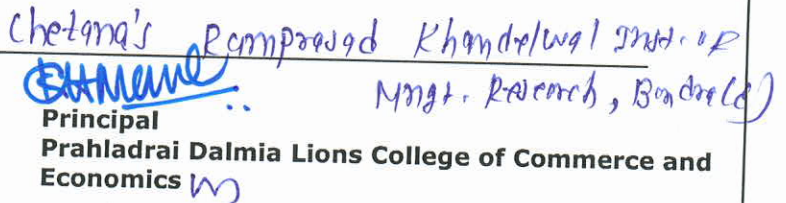 Chetana's Ramprasad Khandelwal Inst. of
Mngt. Research, Bandra (E)
Principal
Prahladrai Dalmia Lions College of Commerce and
Economics